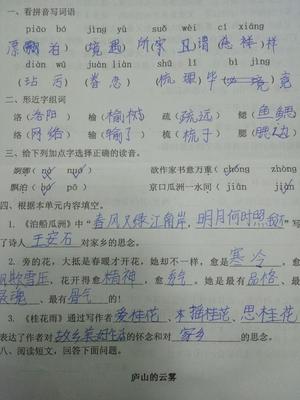 一、看拼音写词语
piāo bó jìng yù suǒ wèi cí xiáng
漂泊 境遇 所 且谓 慈祥 样
diàn wū juàn liàn shū lǐ bì jìng
(玷污) (眷恋) (梳理) 毕 竟
二、形近字组词
洛(洛阳) 榆(榆树) 疏(疏远) 鳃(鱼鳃)
络(网络) 输(输了) 梳(梳子) 腮(腮边)
三、给下列加点字选择正确的读音。
婀娜(nà nuó) 欲作家书意万重(chóng zhòng)
飘泊(bó pō) 京口瓜洲一水间(jiān jiàn)
四、根据本单元内容填空。
1.《泊船瓜洲》中“春风又绿江南岸,明月何时照我还”写
了诗人王安石对家乡的思念。
2. 旁的花,大抵是春暖才开花,她却不一样,愈是寒冷,
风欺雪压,花开得愈精神,愈秀气,她是最有品格、最
灵魂、最有骨气的!
3.《桂花雨》通过写作者爱桂花、摇桂花、思桂花
表达了作者对故乡美好生活的怀念和对家乡的思念。
八、阅读短文,回答下面问题。
庐山的云雾